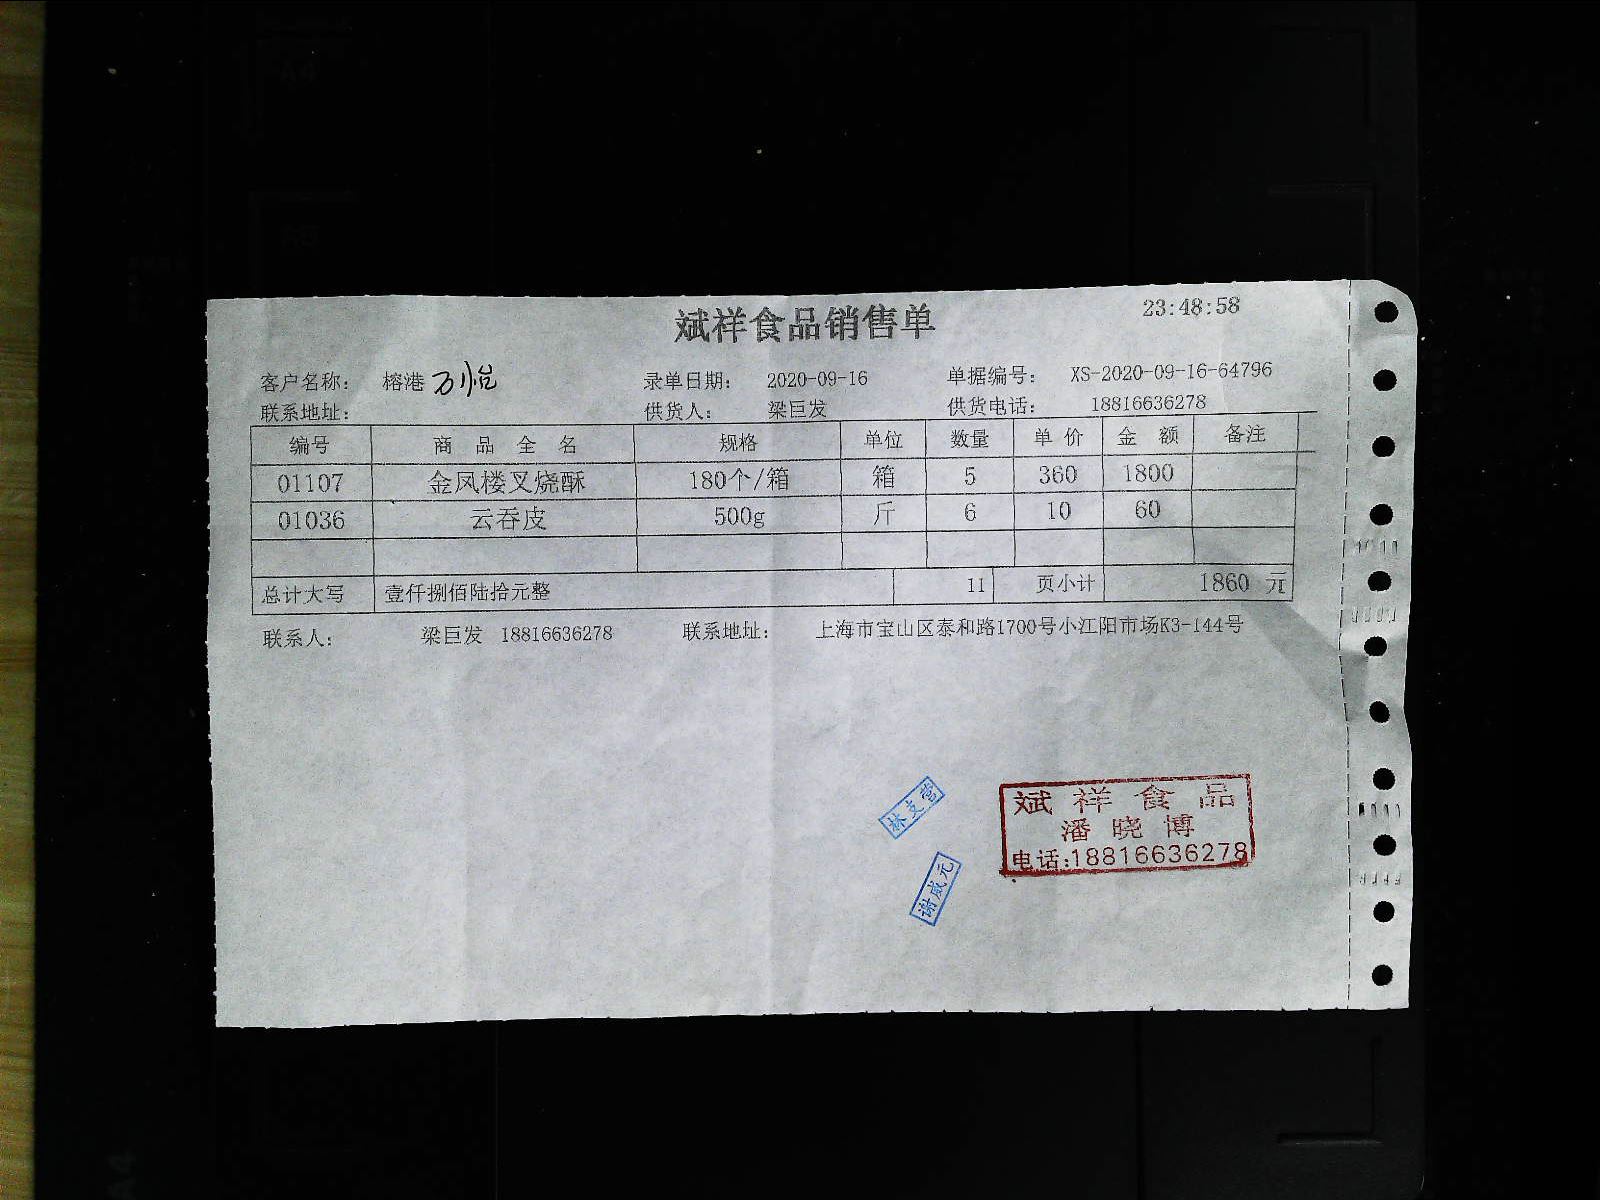 斌祥食品销售单 23:48:58
客户名称： 榕港 万怡 录单日期： 2020-09-16 单据编号： XS-2020-09-16-64796
联系地址： 供货人： 梁巨发 供货电话： 18816636278
编号 商品全名 规格 单位 数量 单价 金额 备注
01107 金凤楼叉烧酥 180个/箱 箱 5 360 1800
01036 云吞皮 500g 斤 6 10 60
总计大写 壹仟捌佰陆拾元整 11 页小计 1860 元
联系人： 梁巨发 18816636278 联系地址： 上海市宝山区泰和路1700号小江阳市场K3-144号
林支营
斌祥食品
潘晓博
电话:18816636278
谢成元
A4